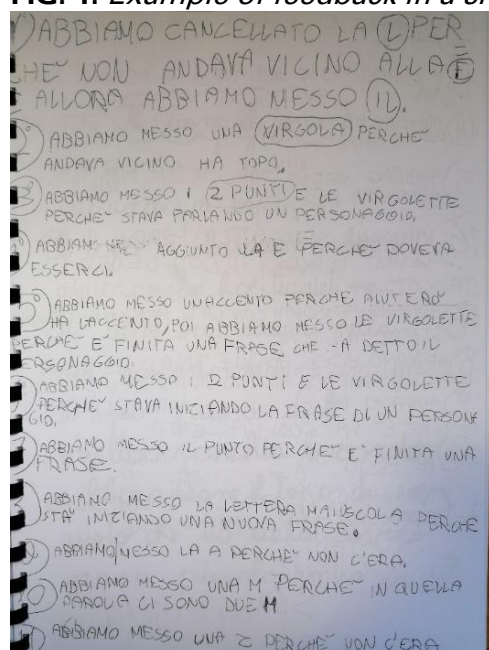 FIG. 1. Example of feedback in a
1°) ABBIAMO CANCELLATO LA (L) PER
CHE NON ANDAVA VICINO ALLA È
E ALLORA ABBIAMO MESSO (IL).
2°) ABBIAMO MESSO UNA (VIRGOLA) PERCHE'
ANDAVA VICINO HA TOPO.
3°) ABBIAMO MESSO I (2 PUNTI) E LE VIRGOLETTE
PERCHE' STAVA PARLANDO UN PERSONAGGIO.
4°) ABBIAMO AGGIUNTO LA E PERCHE' DOVEVA
ESSERCI.
5°) ABBIAMO MESSO UNACCENTO PERCHE AIUTERO'
HA L'ACCENTO, POI ABBIAMO MESSO LE VIRGOLETTE
PERCHE E' FINITA UNA FRASE CHE -A DETTO IL
PERSONAGGIO.
ABBIAMO MESSO I 2 PUNTI E LE VIRGOLETTE
PERCHE' STAVA INIZIANDO LA FRASE DI UN PERSONA
GIO.
ABBIAMO MESSO IL PUNTO PERCHE' E' FINITA UNA
FRASE.
ABBIAMO MESSO LA LETTERA MAIUSCOLA PERCHE
STA' INIZIANDO UNA NUOVA FRASE.
ABBIAMO MESSO LA A PERCHE' NON C'ERA.
ABBIAMO MESSO UNA M PERCHE' IN QUELLA
PAROLA CI SONO DUE M
ABBIAMO MESSO UNA Z PERCHE' NON C'ERA